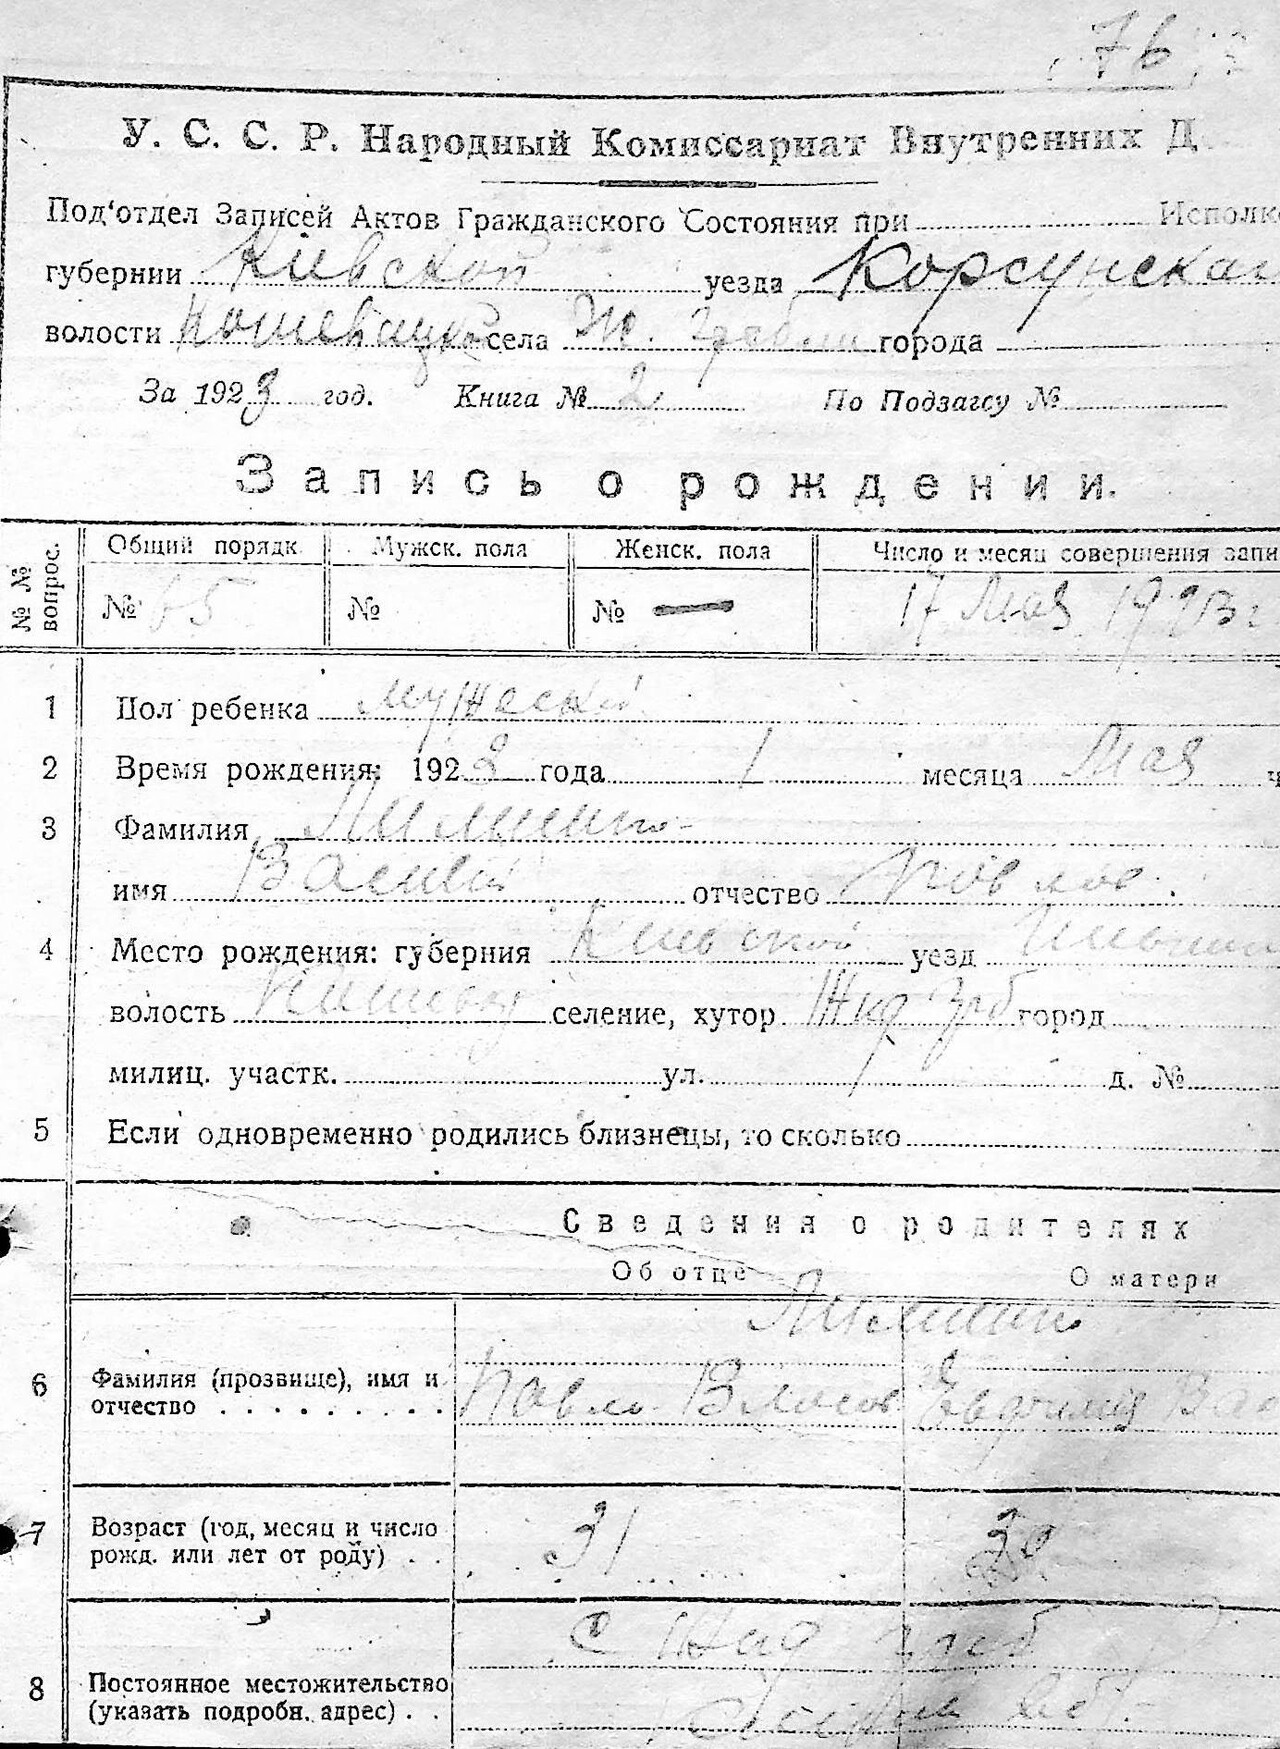 76
У. С. С. Р. Народный Комиссариат Внутренних Д
Под‘отдел Записей Актов Гражданского Состояния при Исполк
губернии Киевской уезда Корсунскаг
волости села Ж. Гребли города
За 1923 год. Книга № 2 По Подзагсу №
Запись о рождении.
№ № вопрос. Общий порядк Мужск. пола Женск. пола Число и месяц совершения запи
№ 65 № № — 17 Мая 1923 г
1 Пол ребенка мужеский
2 Время рождения: 1923 года 1 месяца Мая ч
3 Фамилия
имя Василий отчество Павлов
4 Место рождения: губерния Киевской уезд
волость селение, хутор Жид Грб город
милиц. участк. ул. д. №
5 Если одновременно родились близнецы, то сколько
Сведения о родителях
Об отце О матери
6 Фамилия (прозвище), имя и
отчество Павло Власов Евдокия
7 Возраст (год, месяц и число
рожд. или лет от роду) 31 30
с Жид Греб
8 Постоянное местожительство
(указать подробн. адрес)